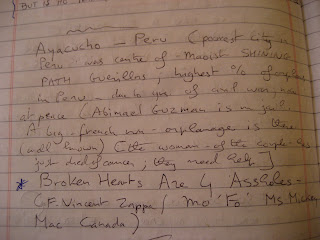 BUT IS NO
Ayacucho - Peru (poorest city in
Peru was centre of - Maoist SHINING
PATH Guerillas, highest % of orphans
in Peru - due to yrs of civil war, now
at peace (Abimael Guzman is in jail
A big - french run - orphanage is there
(well known) (the woman - of the couple has
just died of cancer, they need help)
* Broken Hearts Are 4 Assholes -
C.F. Vincent Zappa / 'Mo' 'Fo' Ms. Mickey
Mac Canada)